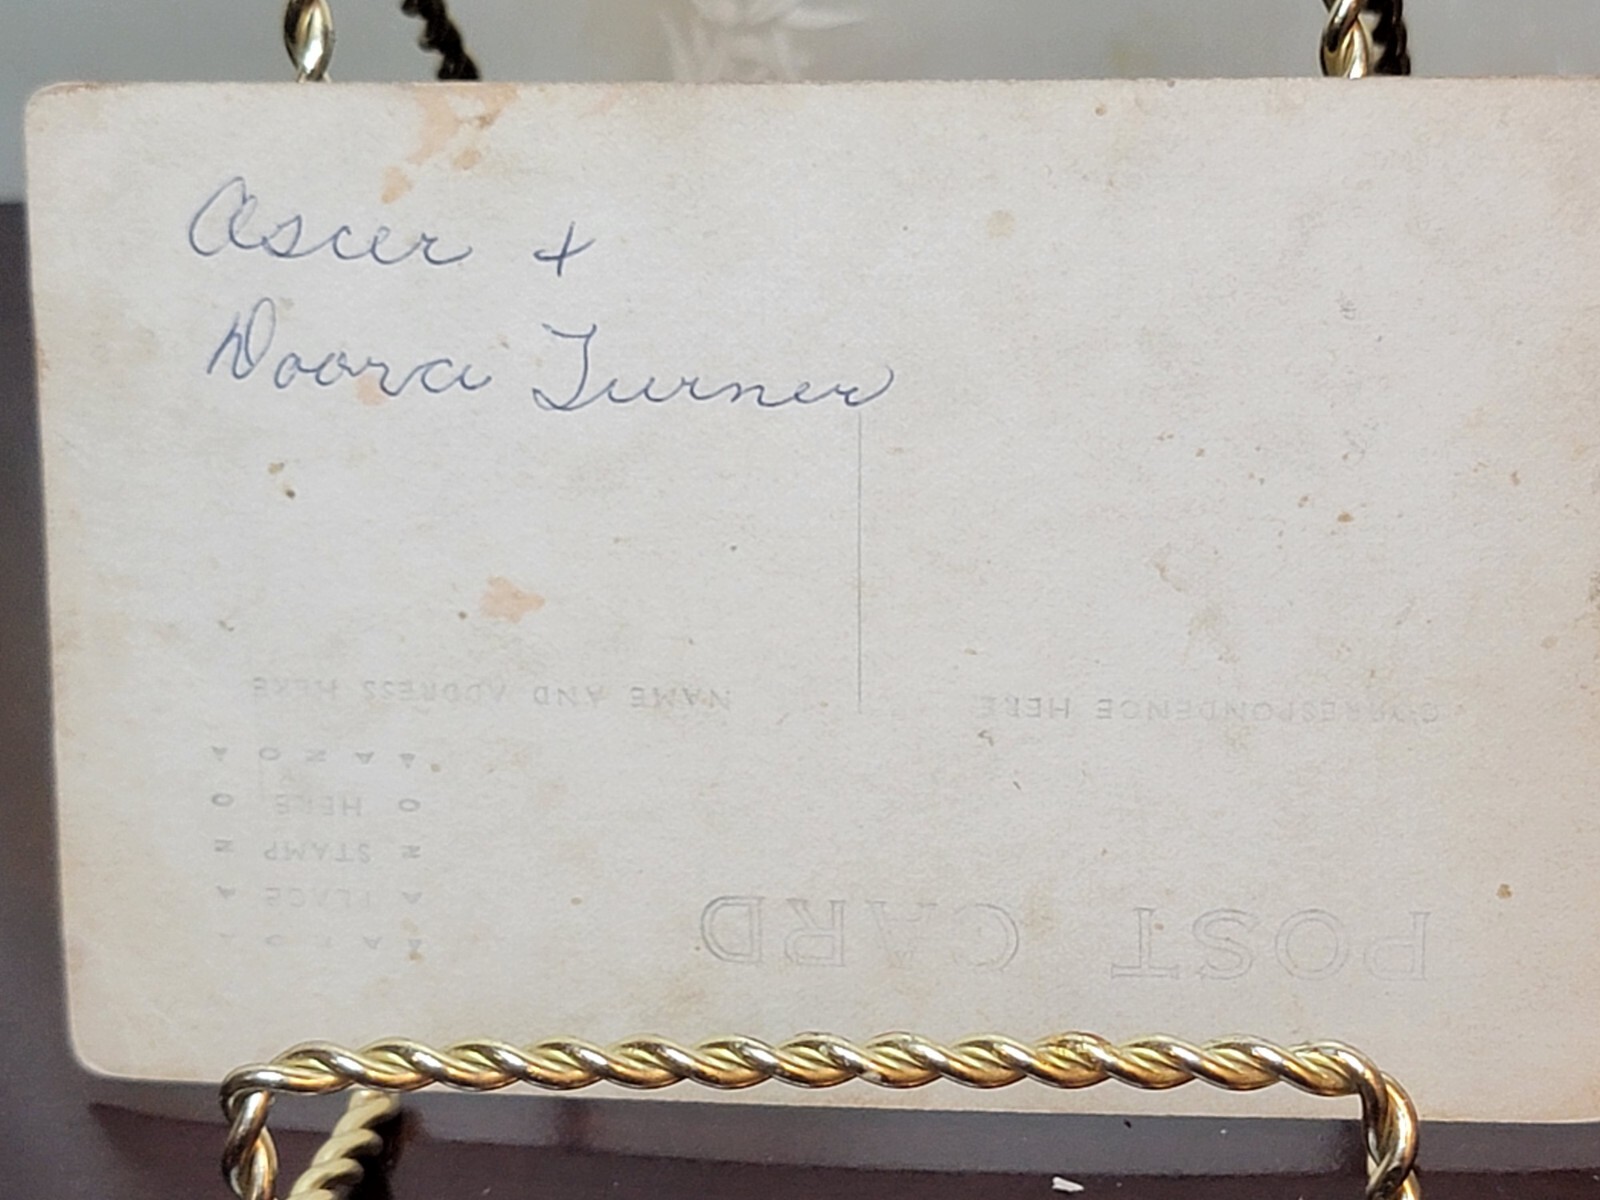 Ascer +
Doora Turner
NAME AND ADDRESS HERE
CORRESPONDENCE HERE
A O N A A
O HERE O
N STAMP N
A PLACE A
POST CARD